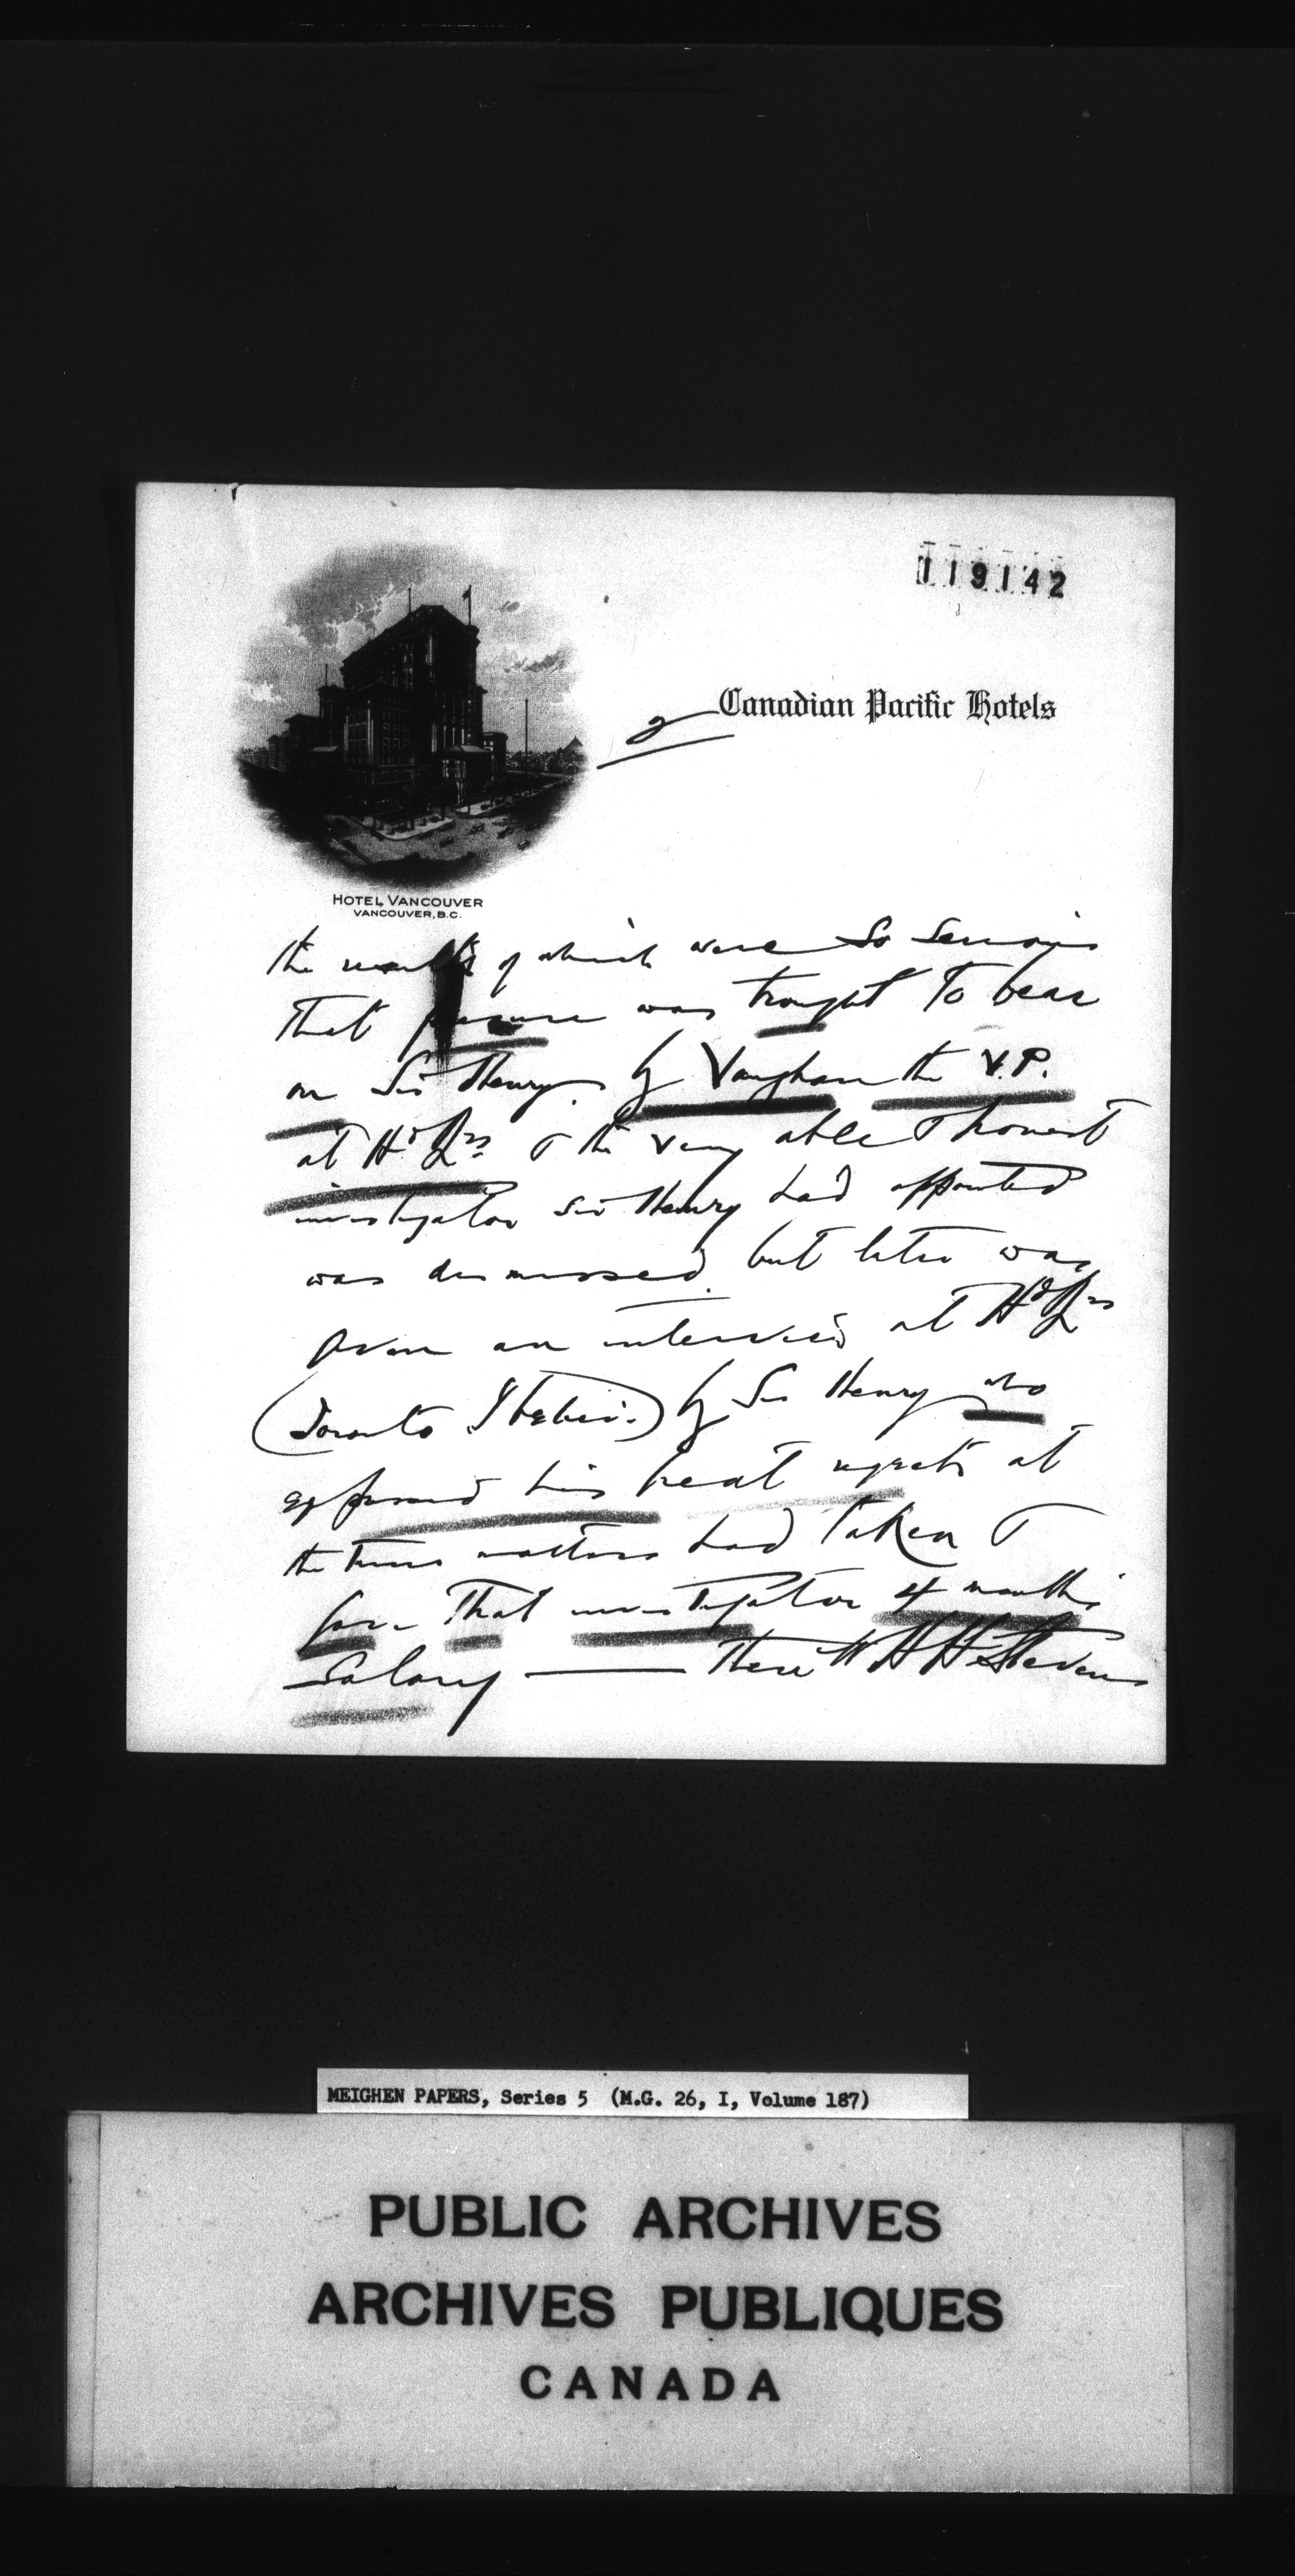 119142
Canadian Pacific Hotels
2
HOTEL VANCOUVER
VANCOUVER, B.C.
the results of which were so serious
that pressure was brought to bear
on Sir Henry by Vaughan the V.P.
at Hd Qrs & the very able & honest
investigator Sir Henry had appointed
was dismissed but later was
given an interview at Hd Qrs
(Toronto I believe) by Sir Henry who
expressed his great regrets at
the turn matters had taken &
gave that investigator 4 months
Salary — Then H H Stevens
MEIGHEN PAPERS, Series 5 (M.G. 26, I, Volume 187)
PUBLIC ARCHIVES
ARCHIVES PUBLIQUES
CANADA